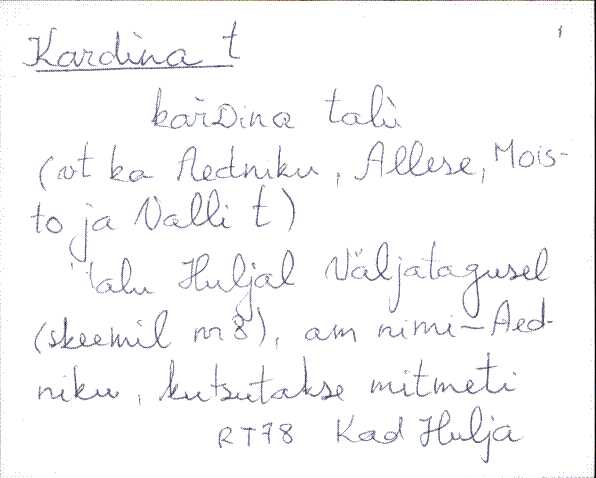 Kardina t
karDina talù
(vt ka Aedniku, Allese, Mois-
to ja Valli t)
talu Huljal Väljatagusel
(skeemil nr 8), am nimi - Aed-
niku, kutsutakse mitmeti
RT78 Kad Hulja